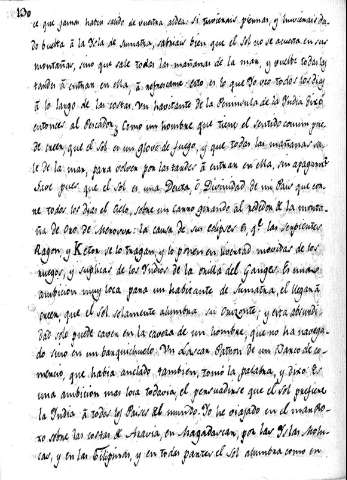 130
ce que jamas habeis salido de vuestra aldea: si tuvieseis piernas, y huvieseis da-
do buelta à la Isla de Sumatra, sabriais bien que el Sol no se acuesta en sus
montañas, sino que sale todas las mañanas de la mar, y vuelve todas las
tardes à entrar en ella, à refrescarse: esto es lo que Yo veo todos los dias
à lo largo de las costas. Un havitante de la Peninsula de la India dixo
entonces al Pescador, Como un hombre que tiene el sentido comun pue-
de creer, que el Sol es un globo de fuego, y que todas las mañanas sa-
le de la mar, para volver por las tardes à entrar en ella, sin apagarse?
Save pues que el Sol es una Deuta, ò Divinidad de mi Pais que cor-
re todos los dias el Cielo, sobre un carro girando al rededor de la monta-
ña de Oro de Merouvou: la causa de sus eclipses es, qe. las serpientes
Ragou y Ketou se lo tragan, y lo ponen en livertad movidas de los
ruegos, y suplicas de los Indios de la orilla del Ganges. Es misma
ambicion muy loca para un habitante de Sumatra, el llegar à
creer que el Sol solamente alumbra su Orizonte; y esta absurdi-
dad solo puede caver en la caveza de un hombre, que no ha navega-
do sino en un banquichuelo. Un Lascar Patron de un Barco de co-
mercio, que havia anclado tambien, tomó la palabra, y dixo: Es
una ambicion mas loca todavia, el persuadirse que el Sol prefiere
la India à todos los Paises del mundo. Yo he viajado en el mar Ro-
xo sobre las costas de Aravia, en Madagascar, por las Islas Molu-
cas, y en las Filipinas, y en todas partes el Sol alumbra como en